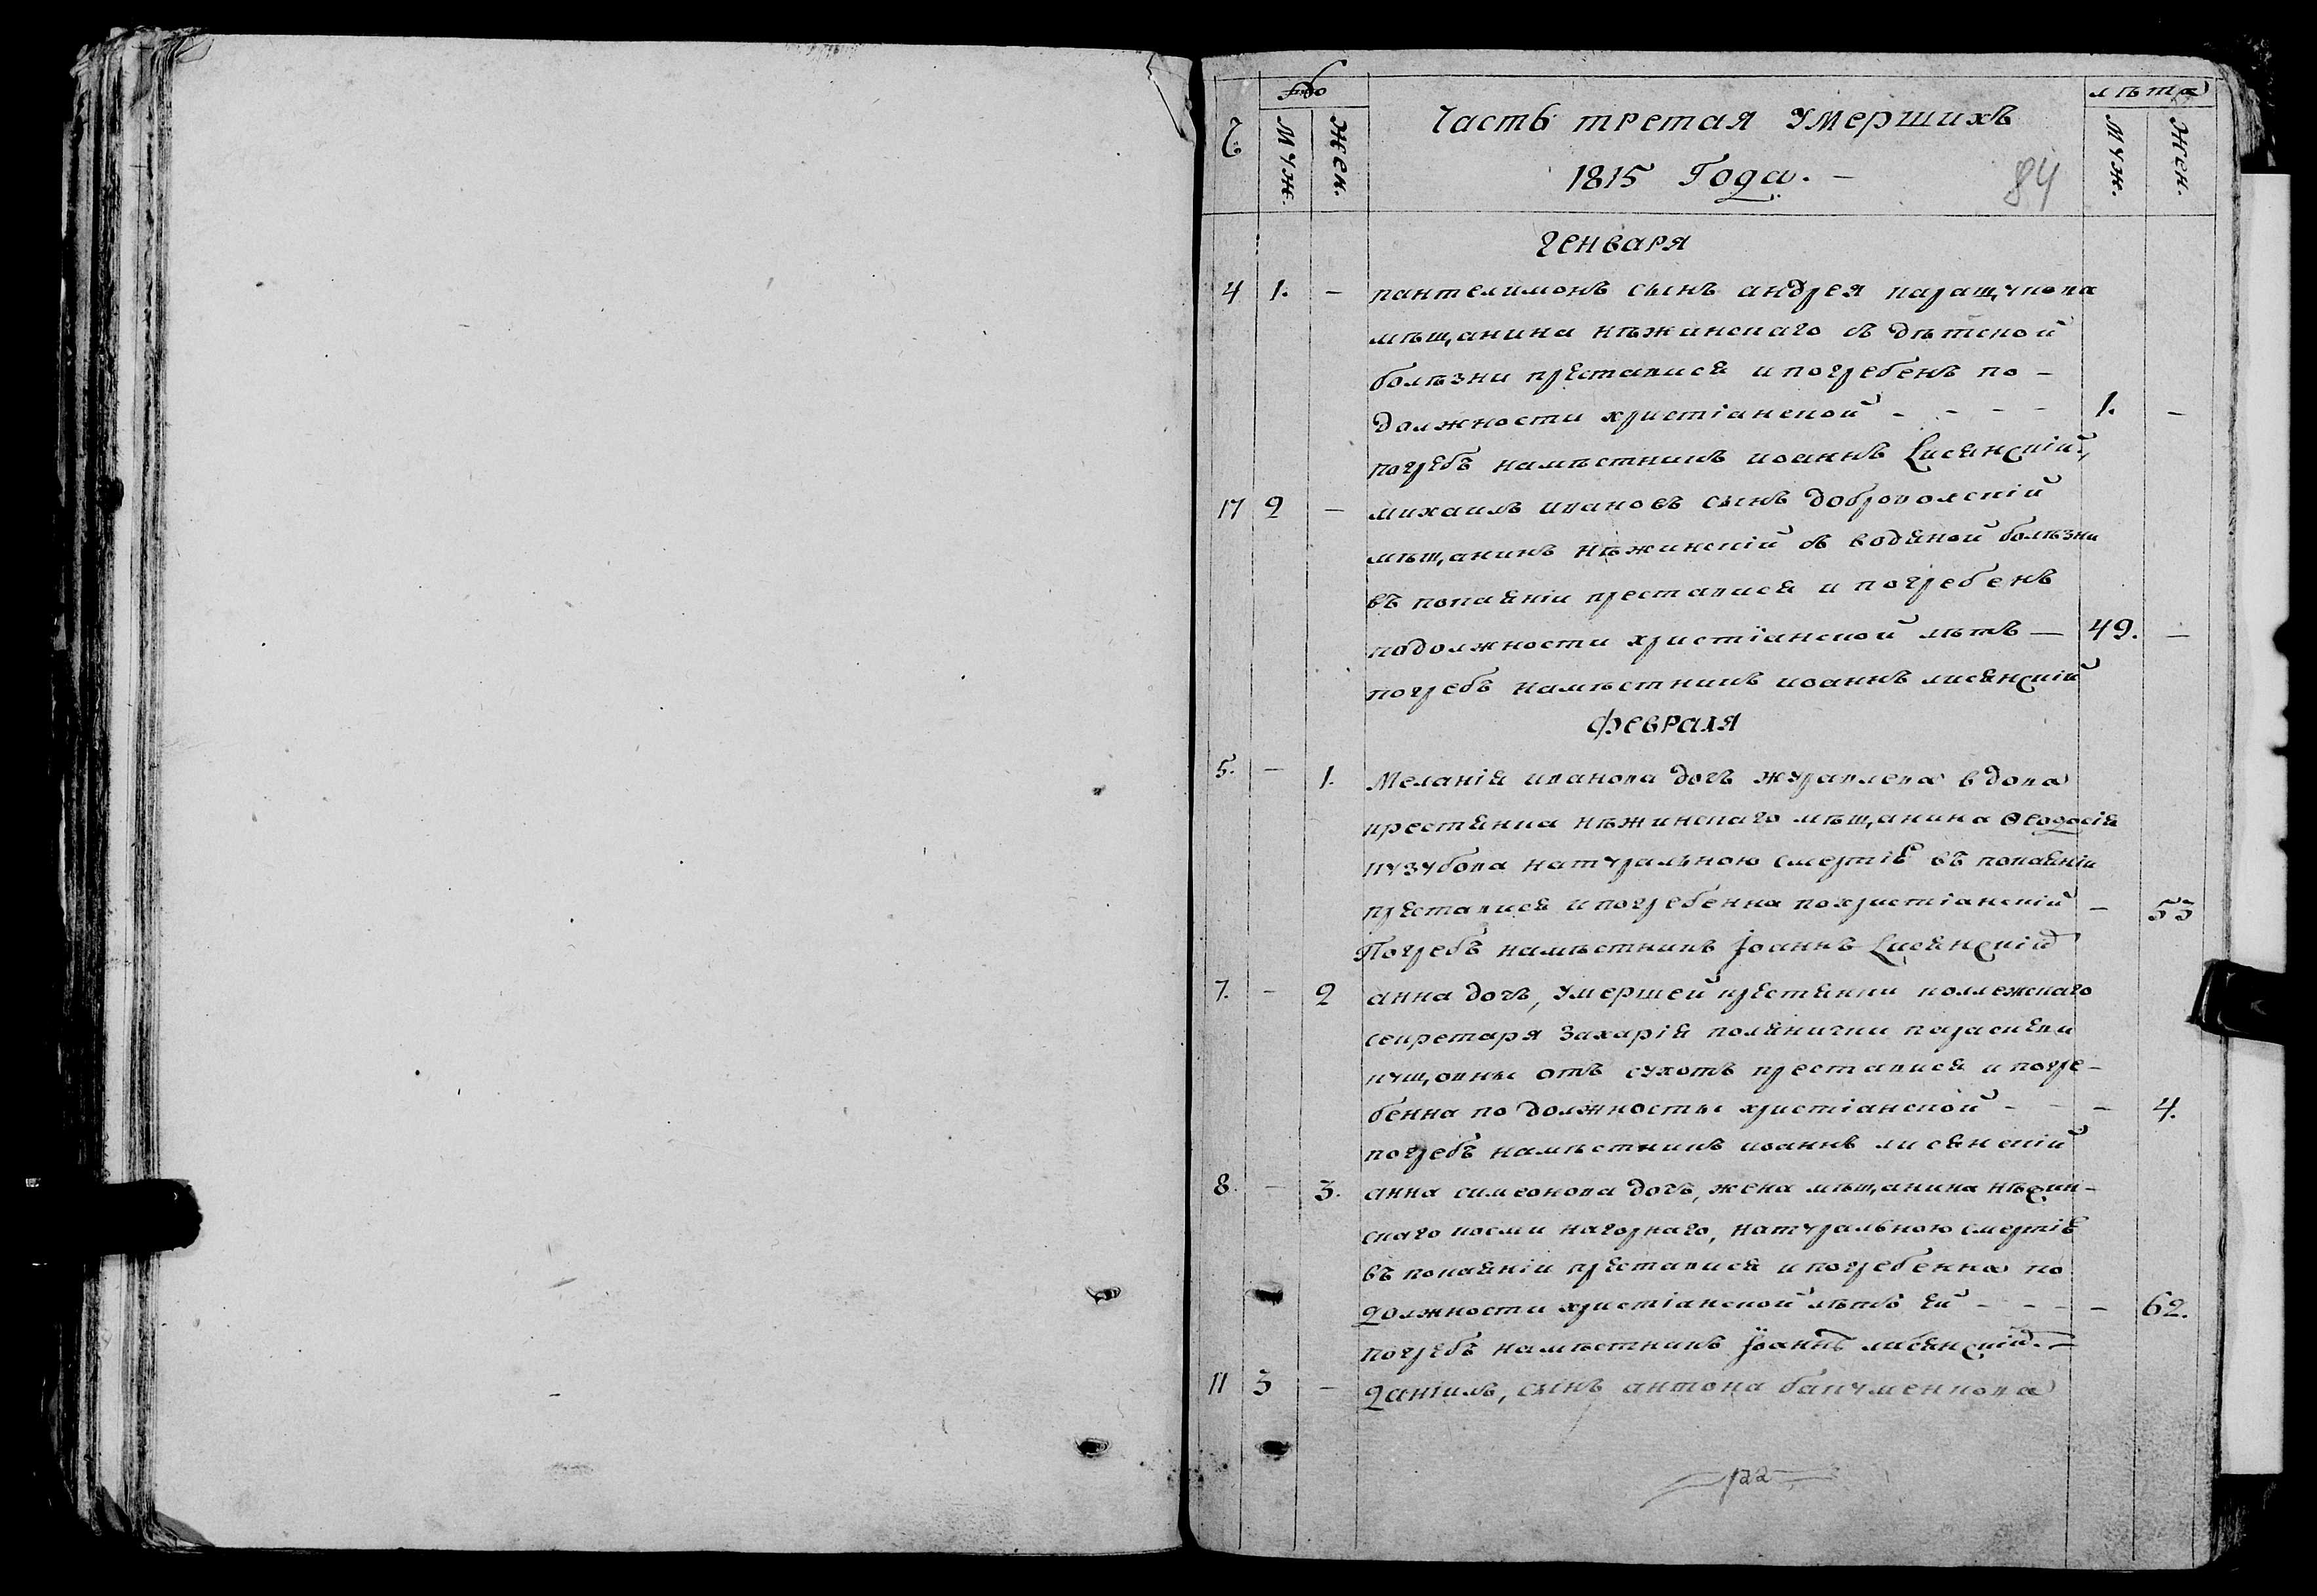 Часть третая умершихъ
1815 Года. –
84
лѣта
Муж.
Жен.
Муж.
Жен.
Генваря
4 1. – пантелимонъ сынъ андрея паращукова
мѣщанина нѣжинскаго съ дѣтской
болѣзни преставися и погребенъ по –
должности христіанской - - - - 1. –
погребъ намѣстникъ иоаннъ Лисянскій,
17 2 – михаилъ ивановъ сынъ доброволскій
мѣщанинъ нѣжинскій съ водяной болѣзни
въ покаяніи преставися и погребенъ
подолжности христіанской лѣтъ — 49. –
погребъ намѣстникъ иоаннъ лисянскій
Февраля
5. – 1. Меланія иванова дочъ журавлева вдова
крестянка нѣжинскаго мѣщанина Ѳеодосія
пузубова натуральною смертію въ покаяніи
преставися и погребенна похристіанскій – 53
Погребъ намѣстникъ Іоаннъ Лисянскій
7. – 2 анна дочъ, умершей крестянки коллежскаго
секретаря Захарія полянички
отъ сухотъ преставися и погре-
бенна по должносты христіанской - - – 4.
погребъ намѣстникъ иоаннъ лисянскій
8. – 3. анна симеонова дочъ, жена мѣщанина нѣжин-
скаго косми нагорнаго, натуральною смертію
въ покаяніи преставися и погребенна по
должности христіанской лѣтъ ей - - - – 62.
погребъ намѣстникъ Іоаннъ лисянскій. –
11 3 – даніилъ, сынъ антона бакуменкова
122